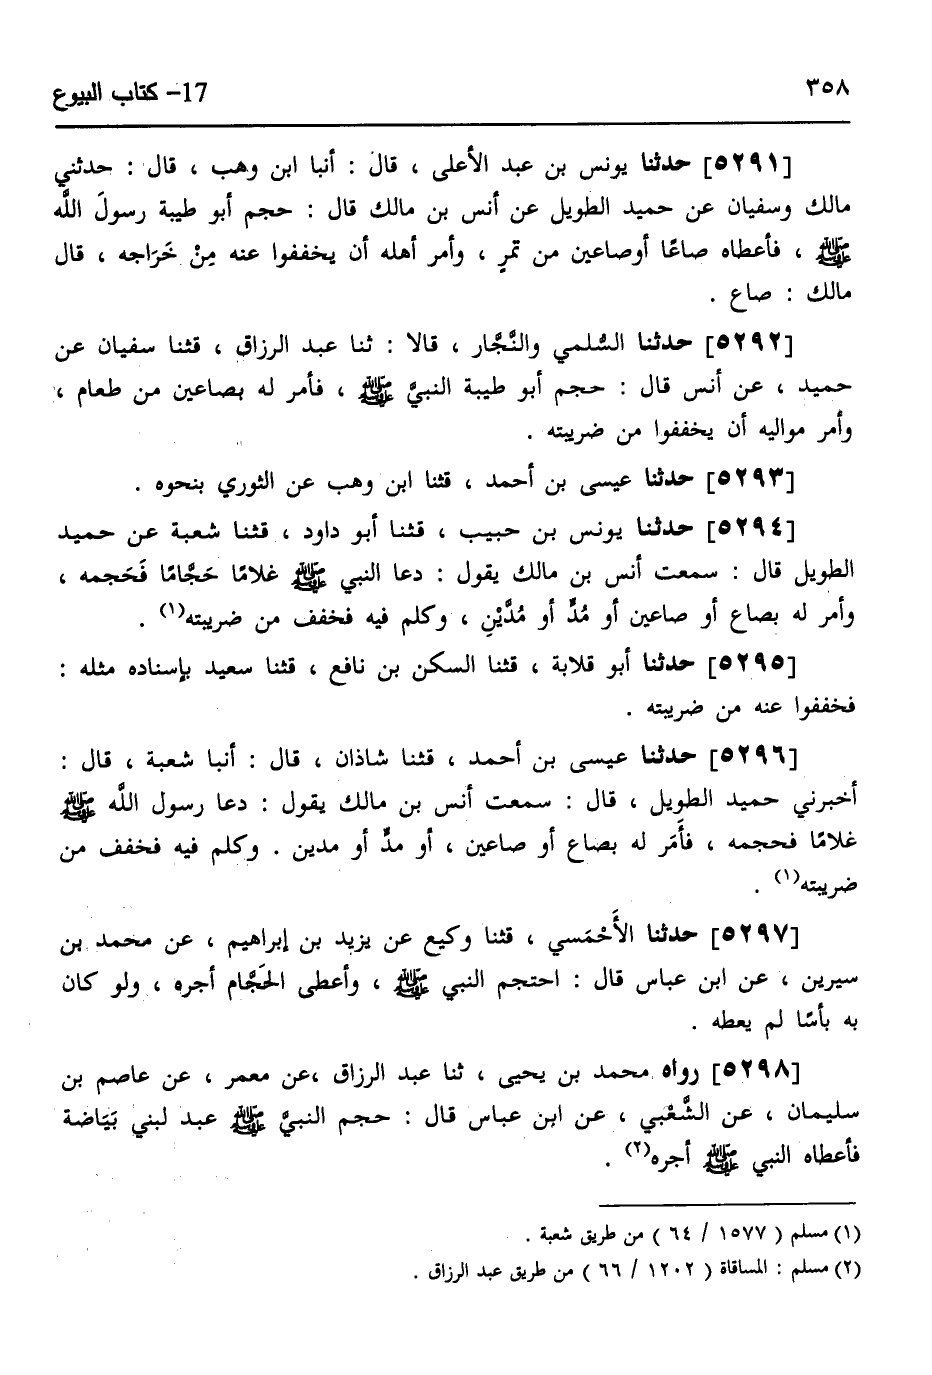 ٣٥٨
17- كتاب البيوع
[٥٢٩١] حدثنا يونس بن عبد الأعلى ، قال : أنبا ابن وهب ، قال : حدثني
مالك وسفيان عن حميد الطويل عن أنس بن مالك قال : حجم أبو طيبة رسولَ اللَّه
ﷺ ، فأعطاه صاعًا أوصاعين من تمرٍ ، وأمر أهله أن يخففوا عنه مِنْ خَرَاجه ، قال
مالك : صاع .
[٥٢٩٢] حدثنا السُّلمي والنَّجَّار ، قالا : ثنا عبد الرزاق ، قثنا سفيان عن
حميد ، عن أنس قال : حجم أبو طيبة النبيَّ ﷺ ، فأمر له بصاعين من طعام ،
وأمر مواليه أن يخففوا من ضريبته .
[٥٢٩٣] حدثنا عيسى بن أحمد ، قثنا ابن وهب عن الثوري بنحوه .
[٥٢٩٤] حدثنا يونس بن حبيب ، قثنا أبو داود ، قثنا شعبة عن حميد
الطويل قال : سمعت أنس بن مالك يقول : دعا النبي ﷺ غلامًا حَجَّامًا فَحَجمه ،
وأمر له بصاع أو صاعين أو مُدٍّ أو مُدَّيْنِ ، وكلم فيه فخفف من ضريبته(١) .
[٥٢٩٥] حدثنا أبو قلابة ، قثنا السكن بن نافع ، قثنا سعيد بإسناده مثله :
فخففوا عنه من ضريبته .
[٥٢٩٦] حدثنا عيسى بن أحمد ، قثنا شاذان ، قال : أنبا شعبة ، قال :
أخبرني حميد الطويل ، قال : سمعت أنس بن مالك يقول : دعا رسول اللَّه ﷺ
غلامًا فحجمه ، فأَمَر له بصاع أو صاعين ، أو مدٍّ أو مدين . وكلم فيه فخفف من
ضريبته(١) .
[٥٢٩٧] حدثنا الأَحْمَسي ، قثنا وكيع عن يزيد بن إبراهيم ، عن محمد بن
سيرين ، عن ابن عباس قال : احتجم النبي ﷺ ، وأعطى الحَجَّام أجره ، ولو كان
به بأسًا لم يعطه .
[٥٢٩٨] رواه محمد بن يحيى ، ثنا عبد الرزاق ،عن معمر ، عن عاصم بن
سليمان ، عن الشَّعْبي ، عن ابن عباس قال : حجم النبيَّ ﷺ عبد لبني بَيَاضة
فأعطاه النبي ﷺ أجره(٢) .
(١) مسلم ( ١٥٧٧ / ٦٤ ) من طريق شعبة .
(٢) مسلم : المساقاة ( ١٢٠٢ / ٦٦ ) من طريق عبد الرزاق .